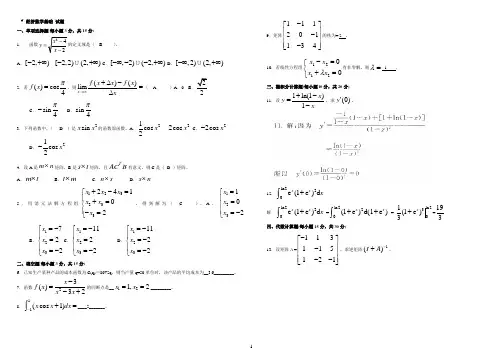 * 经济数学基础 试题
一、单项选择题(每小题3分,共15分)
1. 函数 y = (x²−4)/(x−2) 的定义域是( B )。
A. [−2,+∞) [−2,2)∪(2,+∞) C. (−∞,−2)∪(−2,+∞) D. (−∞,2)∪(2,+∞)
2. 若 f(x) = cos π/4,则 lim [f(x+Δx)−f(x)]/Δx =( A )A. 0 B. √2/2
C. −sin π/4 D. sin π/4
3. 下列函数中,( D )是 x sin x² 的原函数函数。A. 1/2 cos x² 2cos x² C. −2cos x²
D. −1/2 cos x²
4. 设A是m×n矩阵,B是s×t矩阵,且 ACᵀB 有意义,则C是( D )矩阵。
A. m×t B. t×m C. n×s D. s×n
5. 用消元法解方程组 { x₁+2x₂−4x₃=1 x₂+x₃=0 −x₃=2 ,得到解为( C )。A. { x₁=1 x₂=0 x₃=−2
B. { x₁=−7 x₂=2 x₃=−2 C. { x₁=−11 x₂=2 x₃=−2 D. { x₁=−11 x₂=−2 x₃=−2
二、填空题(每小题3分,共15分)
7. 函数 f(x) = (x−3)/(x²−3x+2) 的间断点是__x₁=1, x₂=2________。
8. ∫₋₁¹(x cos x+1)dx=___2______.
9. 矩阵 [1 −1 1; 2 0 −1; 1 −3 4] 的秩为=2
10. 若线性方程组 { x₁−x₂=0 x₁+λx₂=0 有非零解,则λ=-1
三、微积分计算题(每小题10分,共20分)
11. 设 y = (1+ln(1−x))/(1−x),求 y′(0).
11. 解:因为 y′ = {−1/(1−x) (1−x)+[1+ln(1−x)]}/(1−x)² = ln(1−x)/(1−x)²
所以 y′(0) = ln(1−0)/(1−0)² = 0
12. ∫₀^ln2 eˣ(1+eˣ)²dx
解 ∫₀^ln2 eˣ(1+eˣ)²dx = ∫₀^ln2 (1+eˣ)²d(1+eˣ) = 1/3 (1+eˣ)³|₀^ln2 = 19/3
四、代数计算题(每小题15分,共30分)
13. 设矩阵A= [−1 1 3; 1 −1 5; 1 −2 −1],求逆矩阵 (I+A)⁻¹。
1